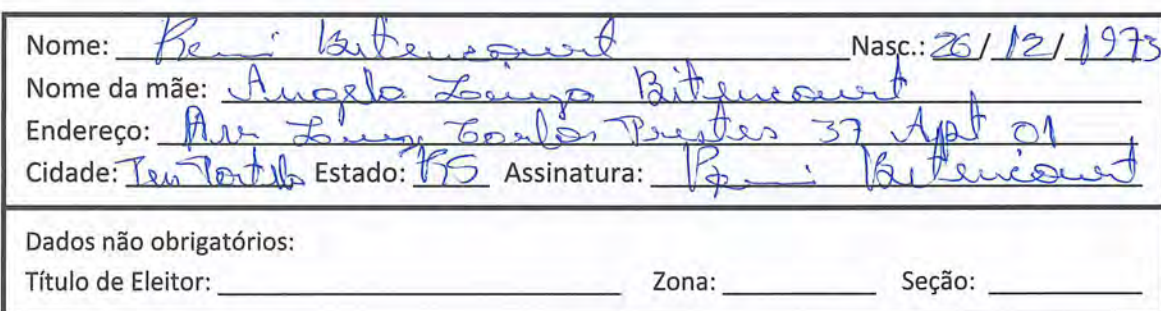 Nome: Remi Bitencourt Nasc.: 26/12/1973
Nome da mãe: Angela Luiza Bitencourt
Endereço: Av Luiz Carlos Prestes 37 Apt 01
Cidade: Ten Portela Estado: RS Assinatura: Remi Bitencourt
Dados não obrigatórios:
Título de Eleitor: Zona: Seção: